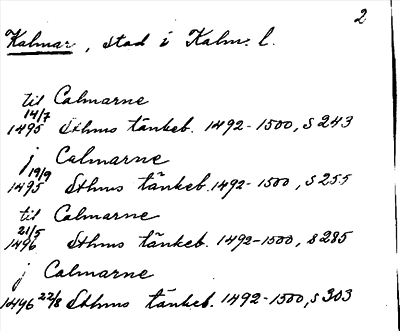 2
Kalmar, stad i Kalm. l.
til Calmarne
14/7
1495 Sthms tänkeb. 1492-1500, s 243
j Calmarne
19/9
1495 Sthms tänkeb. 1492-1500, s 255
til Calmarne
21/5
1496 Sthms tänkeb. 1492-1500, s 285
j Calmarne
1496 22/8 Sthms tänkeb. 1492-1500, s 303